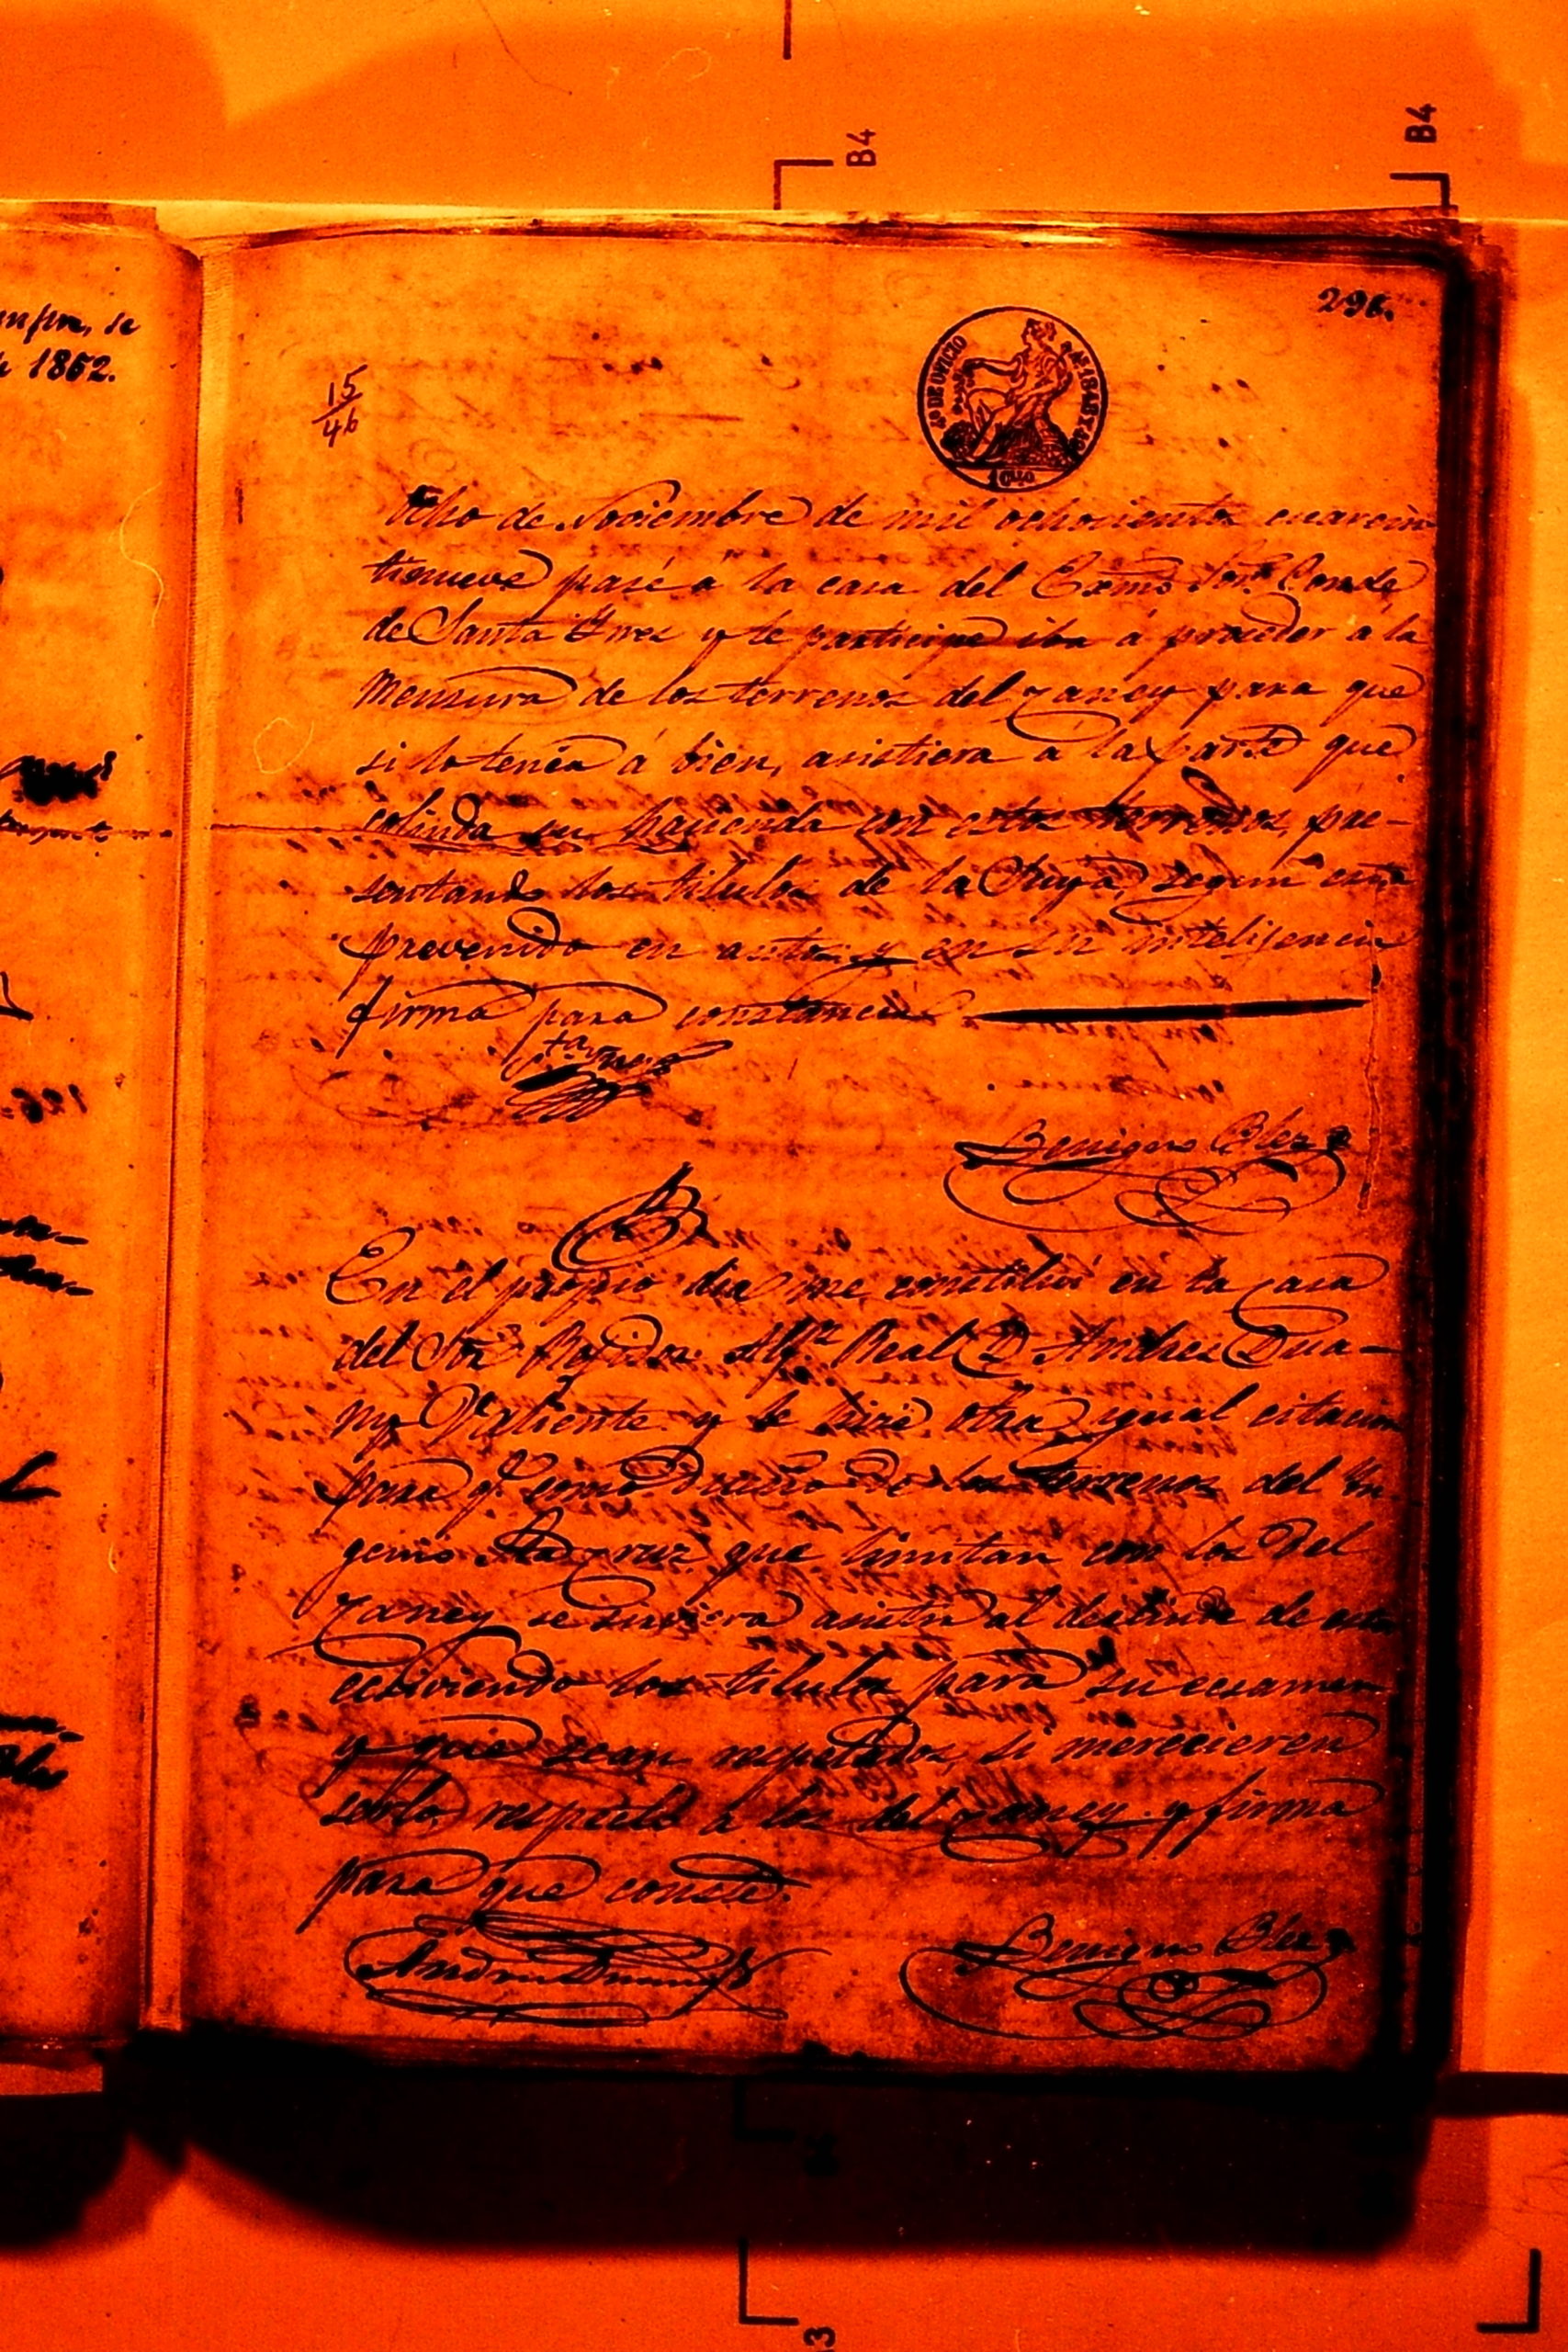 mpre, se
de 1862.
296.
15
46
4º DE OFICIO
AÑS 1848 Y 49
Ocho de Noviembre de mil ochocientos cuaren
tinueve pasé á la casa del Exmo Sor. Conde
de Santa Ynes y le participe iba á proceder a la
mensura de los terrenos del Caney para que
si lo tenia á bien, asistiera á la parte que
colinda su hacienda con estos terrenos, pre-
sentando los titulos de la suya, segun está
prevenido en autos y en su inteligencia
firma para constancia
Sta Ynes
Benigno Blez
En el propio dia me constitui en la casa
del Sor Regidor Alfz Real D. Andres Dua-
ny Valiente y le hize otra igual citacion
para q. como dueño de los terrenos del In
genio Sta Cruz que limitan con los del
Caney se serviera asistir al deslinde de esto
ecsiviendo los titulos para su ecsamen
y que sean respetados, si merecieren
serlo respecto a los del Caney y firma
para que conste.
Andres Duany
Benigno Blez
B4
B4